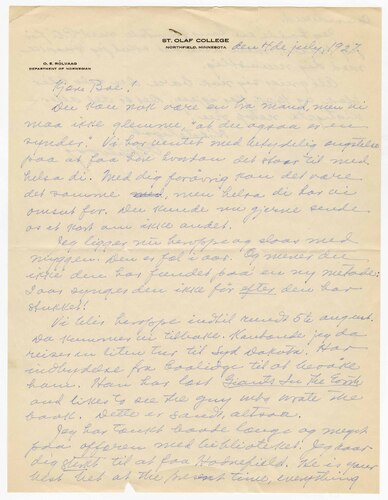 ST. OLAF COLLEGE
NORTHFIELD, MINNESOTA
den 4de july, 1927.
O. E. RÖLVAAG
DEPARTMENT OF NORWEGIAN
Kjære Boe!
Du kan nok være en bra mand, men du
maa ikke glemme "at du ogsaa er en
synder". Vi har ventet med betydelig ængstelse
paa at faa høre hvordan det staar til med
helsa di. Med dig forøvrig kan det være
det samme, men helsa di har vi
omsut for. Du kunde nu gjerne sende
os et kort om ikke andet.
Jeg ligger nu heroppe og slaas med
myggen. Den er fæl i aar. Og
ikke den har fundet paa en ny metode:
I aar synger den ikke før efter den har
stukket!
Vi blir heroppe indtil rundt 5te august.
Da kommer vi tilbake. Kanhende jeg da
reiser en liten tur til Syd Dakota. Har
indbydelse fra Coolidge til at besøke
ham. Han has lest Giants in the Earth
and likes to see the guy who wrote the
book. Dette er sandt, altsaa.
Jeg har tænkt baade længe og meget
paa affæren med biblioteket. Jeg raar
dig sterkt til at faa Hodnefield. He is your
best bet at the present time, everything